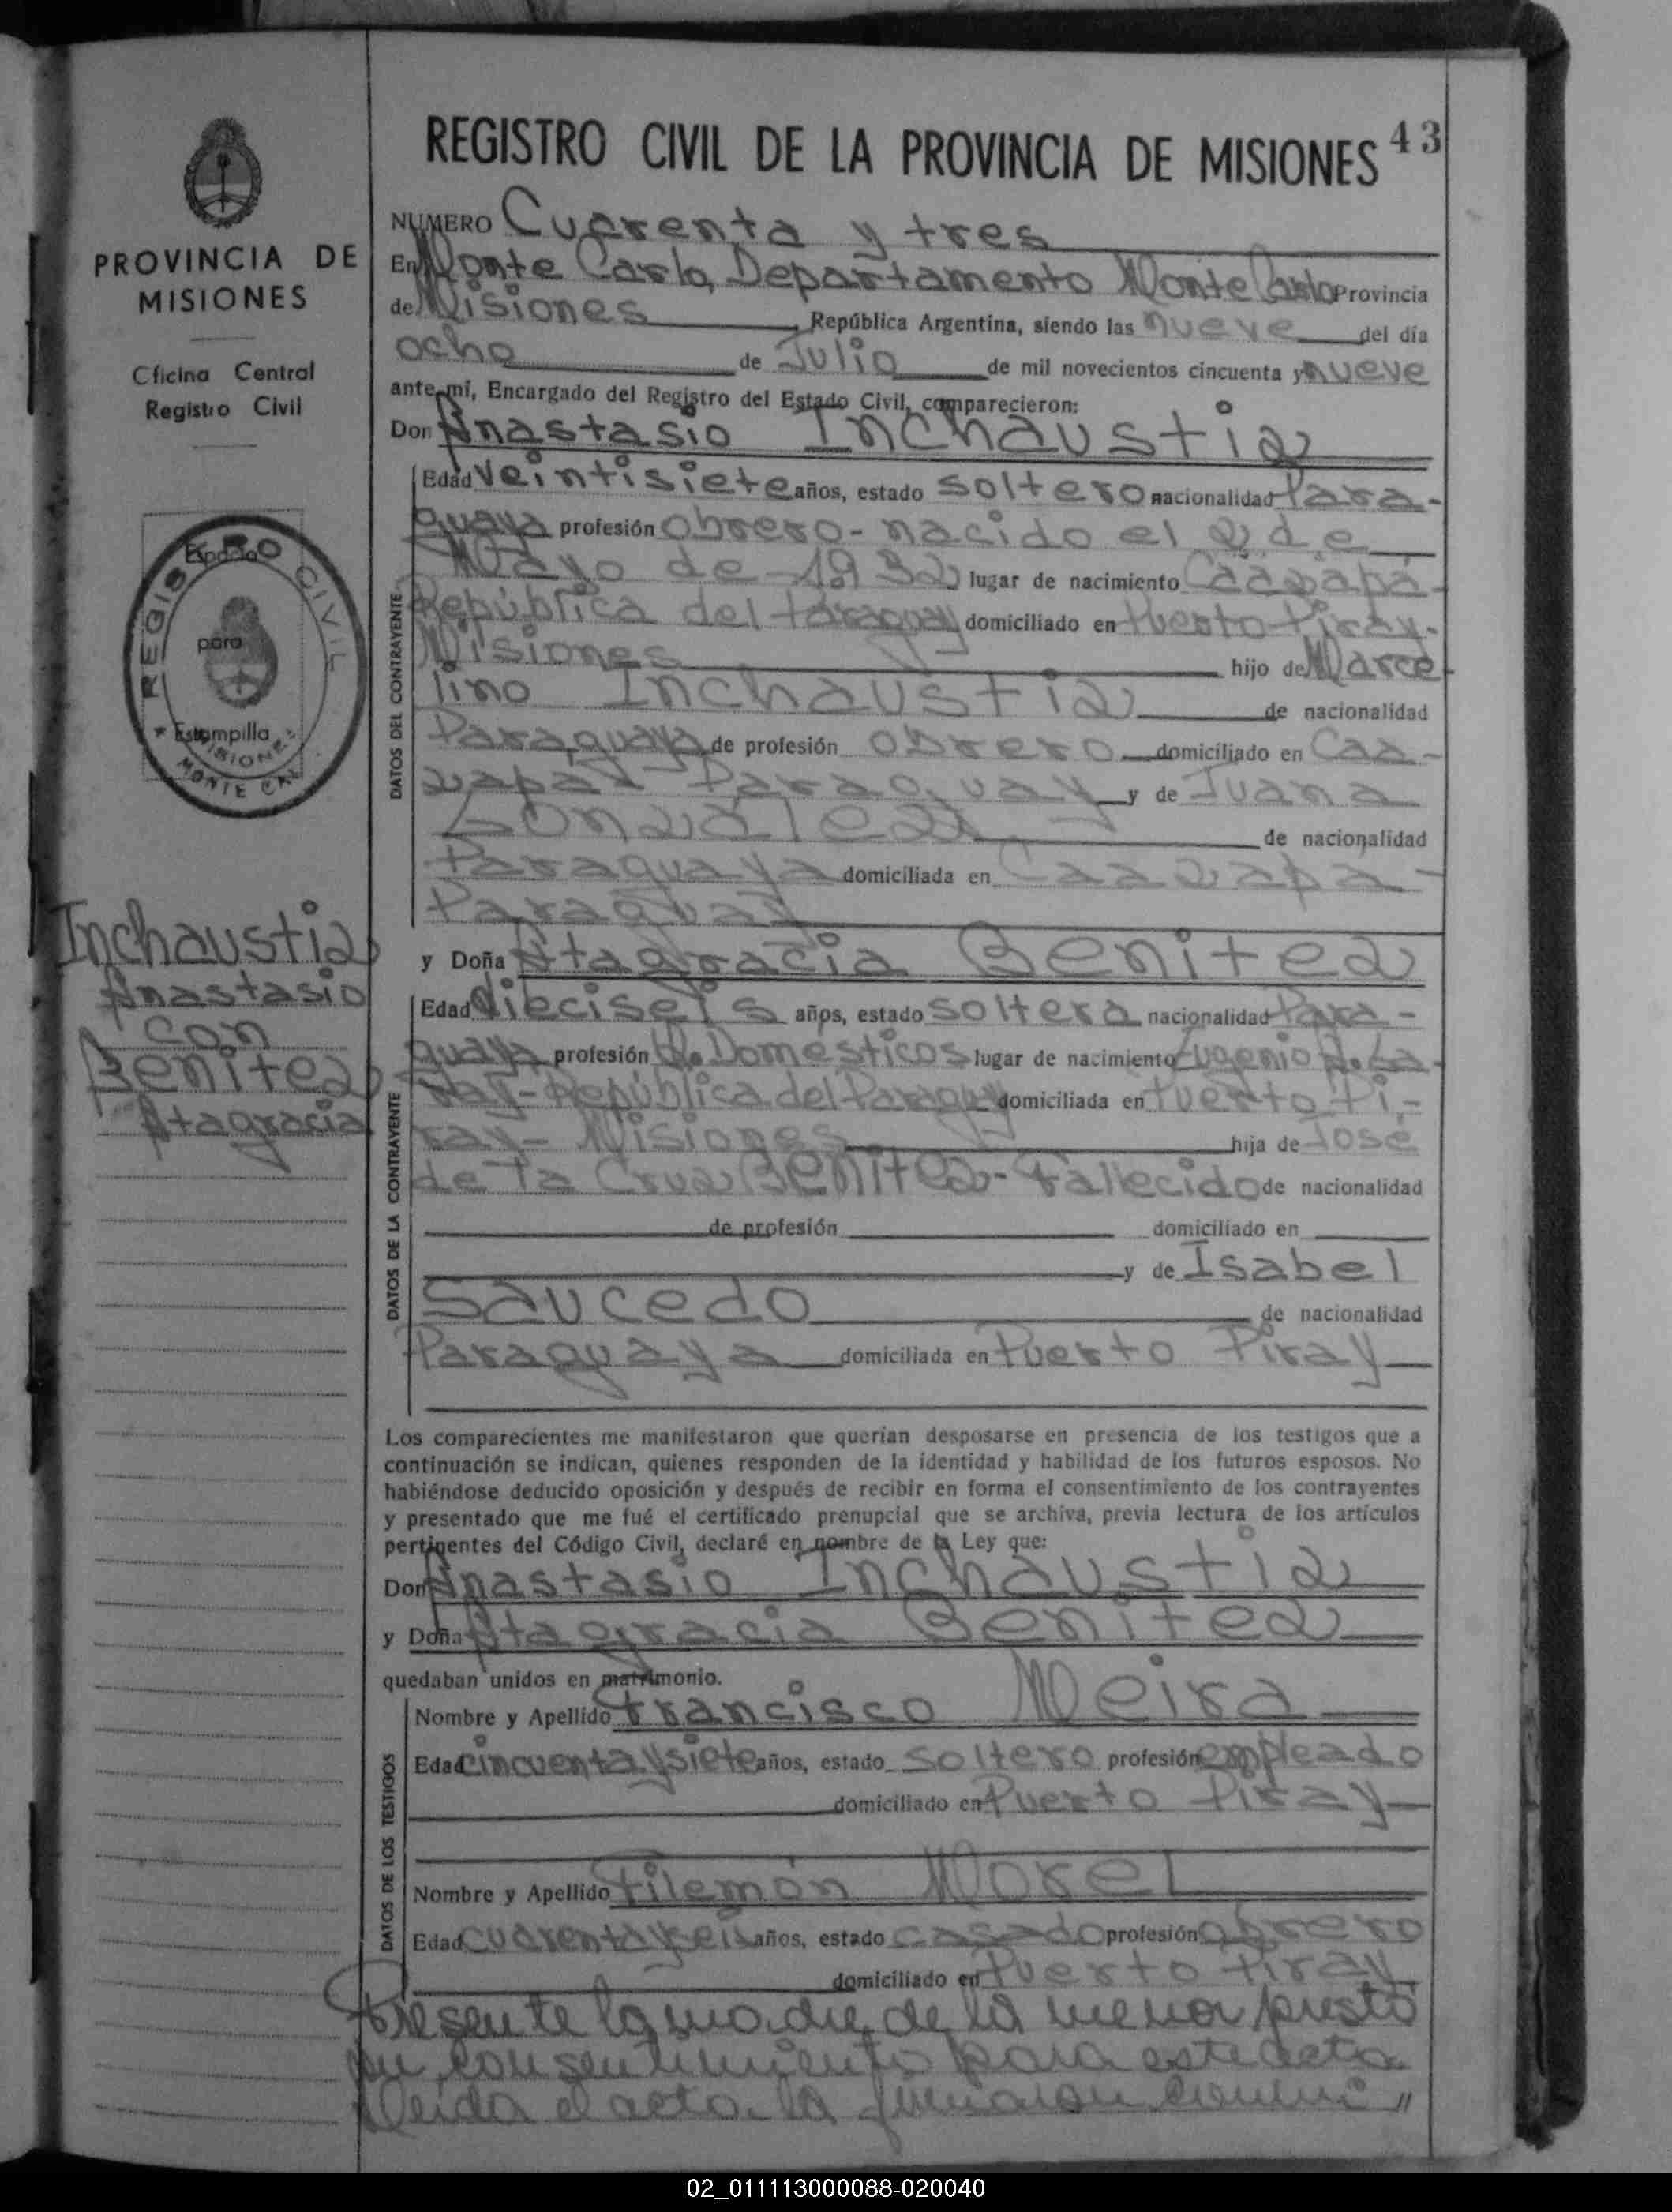 PROVINCIA DE
MISIONES
Oficina Central
Registro Civil
REGISTRO CIVIL
Espacio
para
Estampilla
MISIONES
MONTE CAR
Inchaustiz
Anastasio
con
Benitez
Atagracia
REGISTRO CIVIL DE LA PROVINCIA DE MISIONES 43
NUMERO Cuarenta y tres
En Monte Carlo, Departamento Monte Carlo Provincia
de Misiones, República Argentina, siendo las nueve del día
ocho de Julio de mil novecientos cincuenta y nueve
ante mí, Encargado del Registro del Estado Civil, comparecieron:
Don Anastasio Inchaustiz
DATOS DEL CONTRAYENTE
Edad veintisiete años, estado soltero nacionalidad Para-
guaya profesión obrero- nacido el 2 de
Mayo de 1932 lugar de nacimiento Caazapá-
República del Paraguay domiciliado en Puerto Piray-
Misiones hijo de Marce-
lino Inchaustiz de nacionalidad
Paraguaya de profesión obrero domiciliado en Caa-
zapá- Paraguay y de Juana
Gonzalez de nacionalidad
Paraguaya domiciliada en Caazapá-
Paraguay
y Doña Atagracia Benitez
DATOS DE LA CONTRAYENTE
Edad dieciseis años, estado soltera nacionalidad Para-
guaya profesión Q. Domésticos lugar de nacimiento Eugenio A. Ga-
ray- República del Paraguay domiciliada en Puerto Pi-
ray- Misiones hija de José
de la Cruz Benitez- Fallecido de nacionalidad
de profesión domiciliado en
y de Isabel
Saucedo de nacionalidad
Paraguaya domiciliada en Puerto Piray
Los comparecientes me manifestaron que querían desposarse en presencia de los testigos que a
continuación se indican, quienes responden de la identidad y habilidad de los futuros esposos. No
habiéndose deducido oposición y después de recibir en forma el consentimiento de los contrayentes
y presentado que me fué el certificado prenupcial que se archiva, previa lectura de los artículos
pertinentes del Código Civil, declaré en nombre de la Ley que:
Don Anastasio Inchaustiz
y Doña Atagracia Benitez
quedaban unidos en matrimonio.
DATOS DE LOS TESTIGOS
Nombre y Apellido Francisco Meira
Edad cincuenta y siete años, estado soltero profesión empleado
domiciliado en Puerto Piray
Nombre y Apellido Filemón Morel
Edad cuarenta y seis años, estado casado profesión obrero
domiciliado en Puerto Piray
Presente la madre de la menor prestó
su consentimiento para este acto.
Leida el acta la firmaron conmi"
02_011113000088-020040